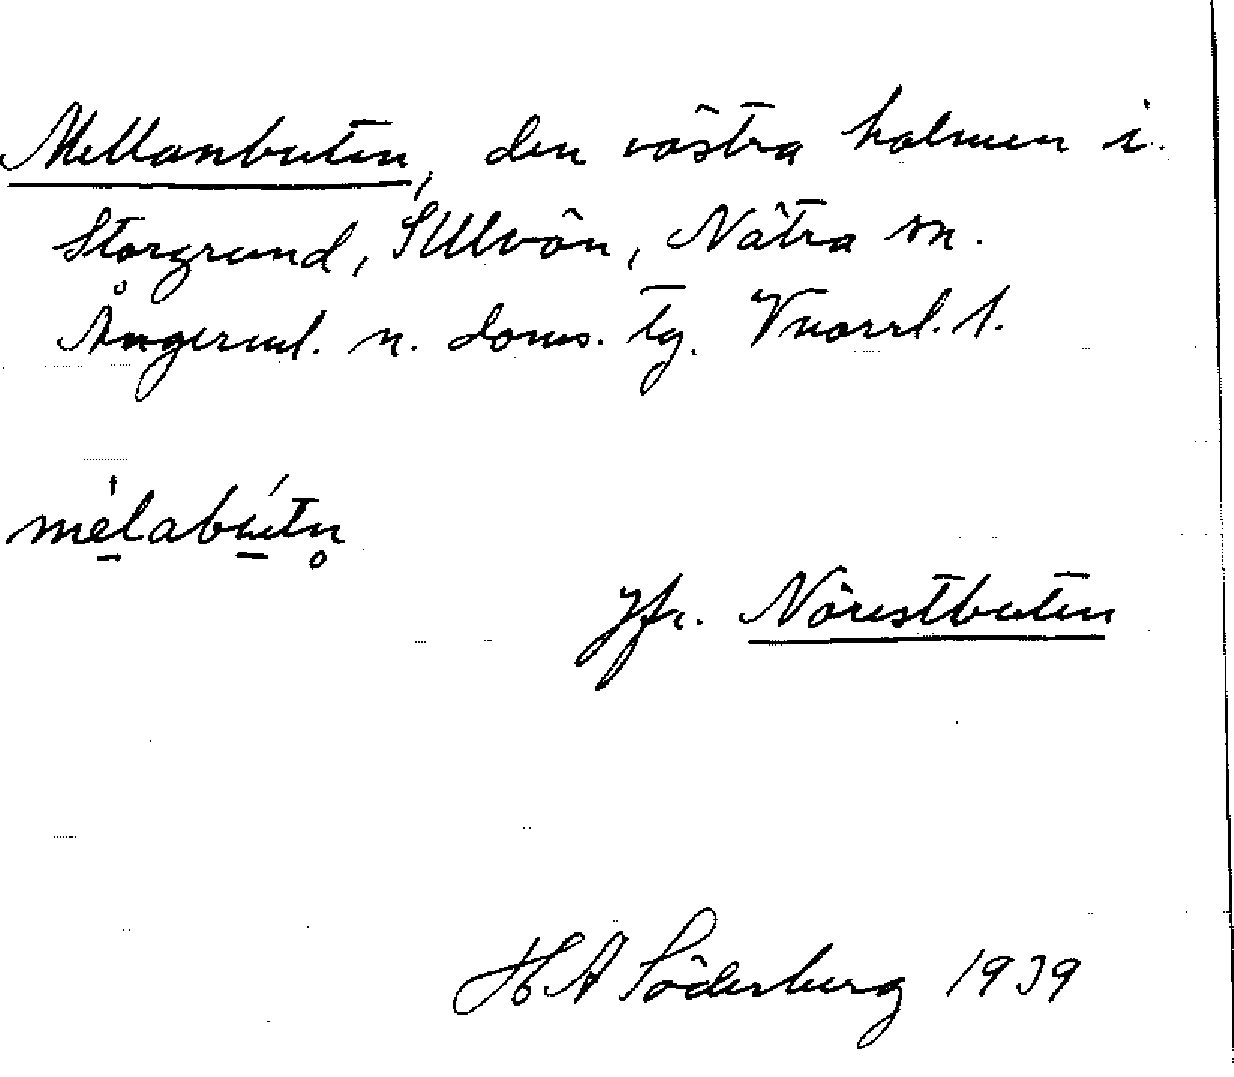 Mellanbuten, den västra holmen i
Storgrund, S Ulvön, Nätra sn.
Ångerml. n. doms. tg. Vnorrl. l.
mèlabútn̥
Jfr. Nörestbuten
H A Söderberg 1939